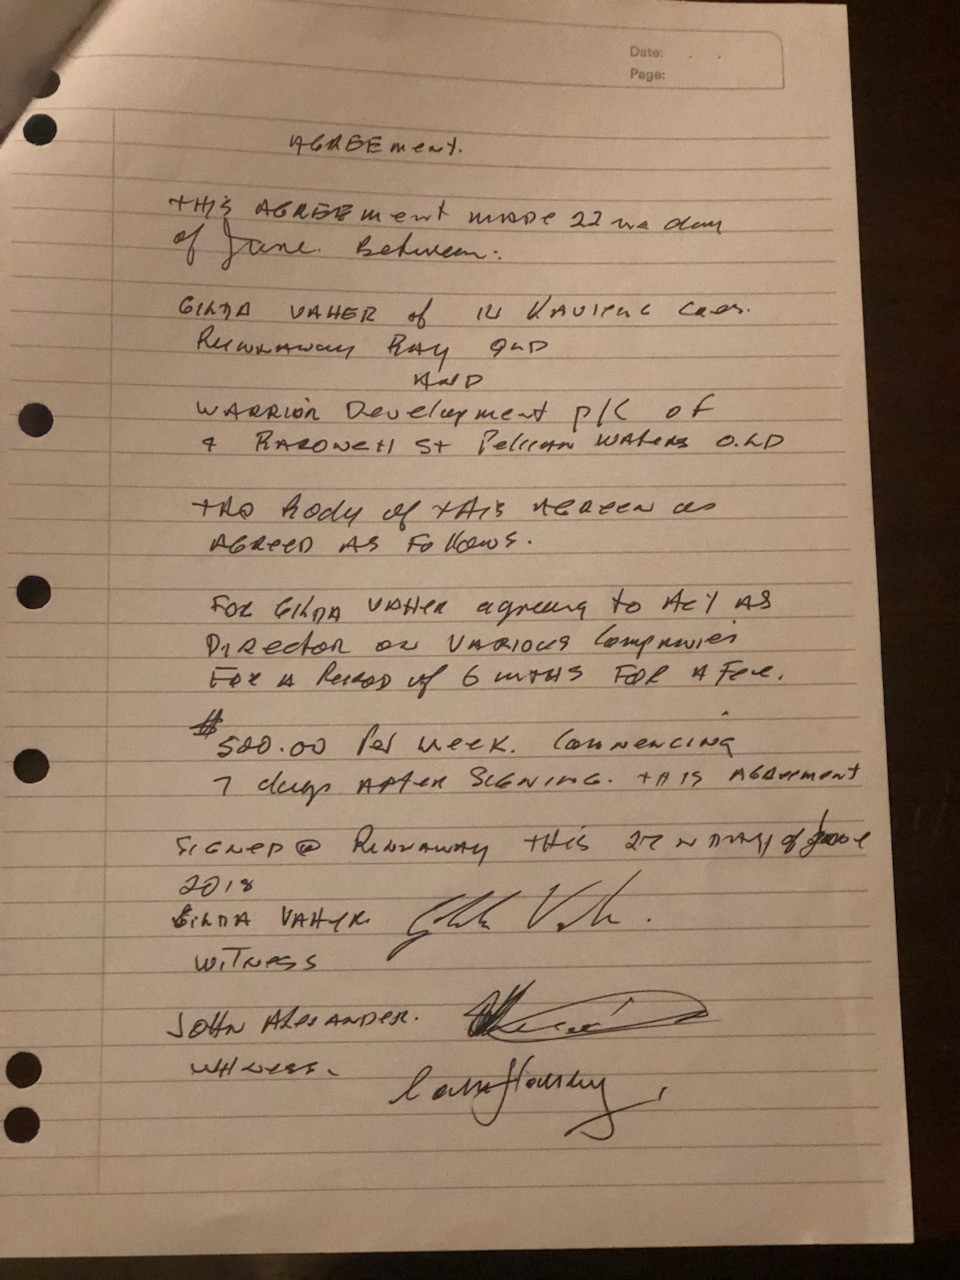 Date:
Page:
AGREEment.
tHis AGREEment MADE 22 day
of June. Between:
GILDA VAHER of
Runnaway BAY QLD
AND
WARRIOR Development P/L of
St Pelican WAters QLD
Body of tHis as
AGREED AS Follows.
FOR GILDA VAHER agreeing to Act AS
DIRector on VARIOUS Companies
FOR A Period of 6 mtHS FOR A Fee.
$500.00 Per week. Commencing
7 days AFter SIGNING. tHIS AGReement
SIGNED @ RUNNAWAY tHIS
2018
GILDA VAHER
WITNESS
JOHN ALEXANDER.
WITNESS.